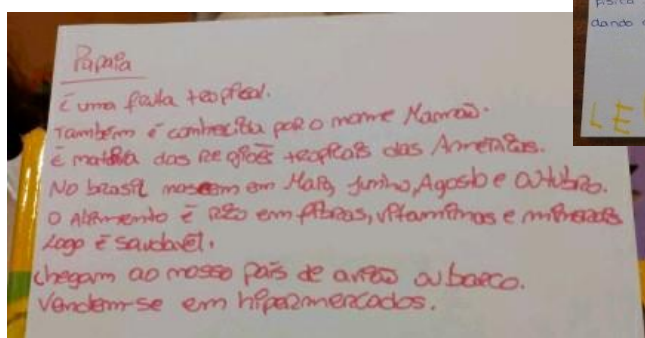 Papaia
É uma fruta tropical.
Também é conhecida por o nome Mamão.
É nativa das regiões tropicais das Américas.
No brasil nascem em Maio, Junho, Agosto e Outubro.
O Alimento é rico em fibras, vitaminas e minerais
Logo é saudavél.
chegam ao nosso país de avião ou barco.
Vendem-se em hipermercados.
dando
LE